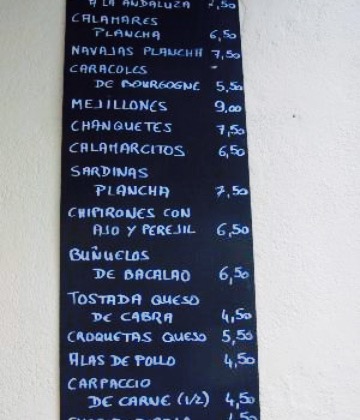 A LA ANDALUZA 7,50
CALAMARES
PLANCHA 6,50
NAVAJAS PLANCHA 7,50
CARACOLES
DE BOURGOGNE 5,50
MEJILLONES 9,00
CHANQUETES 7,50
CALAMARCITOS 6,50
SARDINAS
PLANCHA 7,50
CHIPIRONES CON
AJO Y PEREJIL 6,50
BUÑUELOS
DE BACALAO 6,50
TOSTADA QUESO
DE CABRA 4,50
CROQUETAS QUESO 5,50
ALAS DE POLLO 4,50
CARPACCIO
DE CARNE (1/2) 4,50